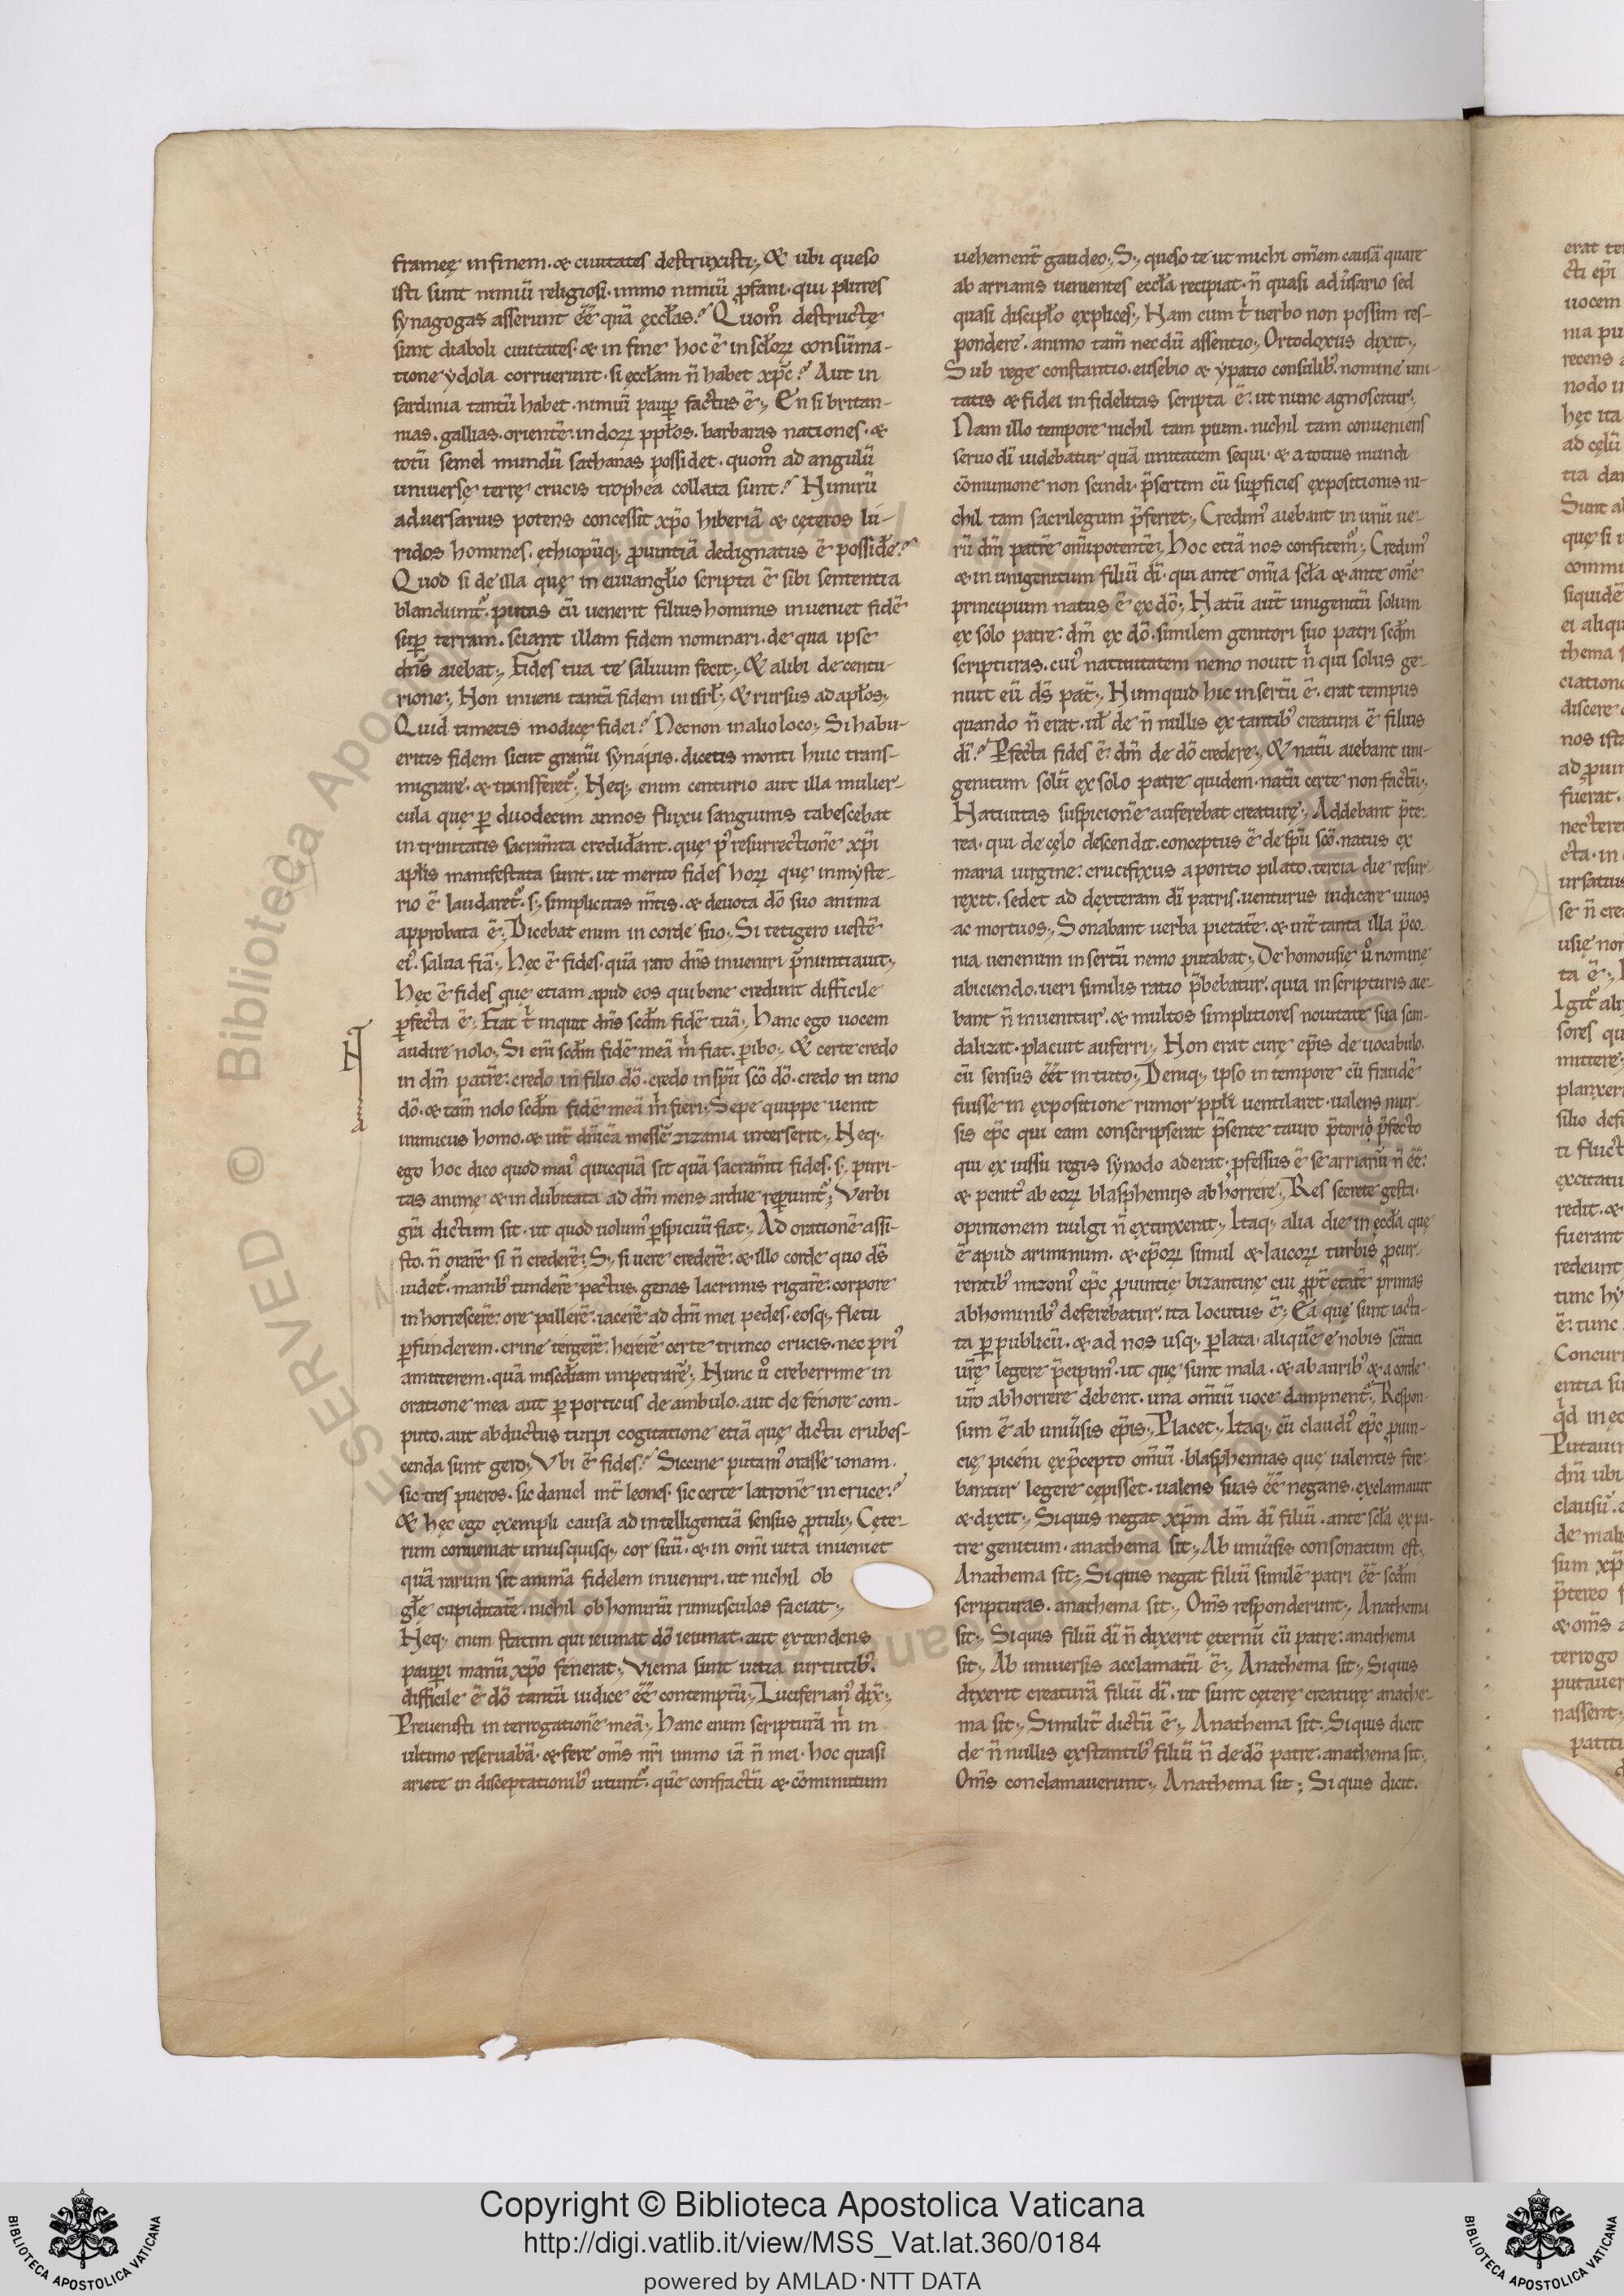 frameę in finem. & ciuitates destruxisti., & ubi queso
isti sunt nimiū religiosi. immo nimiū ꝓfani. qui plures
synagogas asserunt ēē quā ęccłas? Quom̊ destructę
sunt diaboli ciuitates. & in fine hoc ē in scl̃oꝝ consūma-
tione ydola corruerunt. si ęccłam ñ habet xp̄c? Aut in
sardinia tantū habet. nimiū paup̱ factus ē., En si britan-
nias. gallias. orientē. indoꝝ ppl̃os. barbaras nationes. &
totū semel mundū sathanas possidet. quom̊ ad angulū
uniuersę terrę crucis trophea collata sunt? Nimirū
aduersarius potens concessit xp̄o hiberiā & cęteros lu-
ridos homines. ęthiopūq; ꝓuintiā dedignatus ē possidē?
Quod si de illa quę in euuangl̃io scripta ē sibi sententia
blandiunt᷑. putas cū uenerit filius hominis inueniet fidē
sup̱ terram. sciant illam fidem nominari. de qua ipse
dn̄s aiebat., Fides tua te saluum fecit., & alibi de centu-
rione., Non inueni tantā fidem in isrł., & rursus ad apłos.,
Quid timetis modicę fidei? Necnon in alio loco., Si habu-
eritis fidem sicut granū synapis. dicetis monti huic trans-
migrare. & transferet᷑., Neq; enim centurio aut illa mulier-
cula quę p̱ duodecim annos fluxu sanguinis tabescebat
in trinitatis sacram̄ta credid̄ant. quę p᷒ resurrectionē xp̄i
apłis manifestata sunt. ut merito fides hoꝝ quę in myste-
rio ē laudaret᷑. s; simplicitas m̄tis. & deuota dō suo anima
approbata ē., Dicebat enim in corde suo., Si tetigero uestē
ei᷒. salua fiā., Hęc ē fides. quā raro dn̄s inueniri p̄nuntiauit.,
Hęc ē fides quę etiam apud eos qui bene credunt difficile
p̱fecta ē., Fiat t inquit dn̄s scdm̄ fidē tuā., Hanc ego uocem
audire nolo., Si em̄ scdm̄ fidē meā m fiat. p̱ibo., & certe credo
in dm̄ patrē: credo in filio dō. credo in sp̄u scō dō. credo in uno
dō. & tam̄ nolo scdm̄ fidē meā m fieri., Sepe quippe uenit
inimicus homo. & int̄ dn̄icā messē zizania interserit., Neq;
ego hoc dico quod mai᷒ quicquā sit quā sacram̄ti fides. s; puri-
tas animę & indubitata ad dm̄ mens ardue rep̱iunt᷑., Verbi
grā dictum sit. ut quod uolum᷒ p̱spicuū fiat., Ad orationē assi-
sto. ñ orarē si ñ crederē., S; si uere crederē. & illo corde quo ds̄
uidet᷑. manib᷒ tunderē pectus. genas lacrimis rigarē. corpore
inhorrescerē. ore pallerē. iacerē ad dm̄ mei pedes. eosq; fletu
p̱funderem. crine tergerē. hererē certe trunco crucis. nec pri᷒
amitterem. quā miscd̄iam impetrarē., Nunc ů creberrime in
oratione mea aut p̱ porticus deambulo. aut de fenore com-
puto. aut abductus turpi cogitatione etiā quę dictu erubes-
cenda sunt gero., Vbi ē fides? Siccine putam᷒ orasse ionam.
sic tres pueros. sic daniel int̄ leones. sic certe latronē in cruce?
& hęc ego exempli causa ad intelligentiā sensus ꝓtuli., Cęte-
rum conueniat unusquisq; cor suū. & in om̄i uita inueniet
quā rarum sit animā fidelem inueniri. ut nichil ob
głę cupiditatē. nichil ob hominū rumusculos faciat.,
Neq; enim statim qui ieiunat dō ieiunat. aut extendens
paup̱i manū xp̄o fenerat., Vicina sunt uitia uirtutib᷒.
difficile ē dō tantū iudice ēē contemptū., Luciferian᷒ dix̄.,
Preuenisti interrogationē meā., Hanc enim scripturā m in
ultimo reseruabā. & fere om̄s nr̄i immo iā ñ mei. hoc quasi
ariete in disceptationib᷒ utunt᷑. quē confractū & cōminutum
uehement̄ gaudeo., S; queso te ut michi om̄em causā quare
ab arrianis uenientes ecclā recipiat. ñ quasi aduersario sed
quasi discipło explices., Nam cum t uerbo non possim res-
pondere. animo tam̄ necdū assentio., Ortodoxus dixit.,
Sub rege constantio. eusebio & ypatio consulib᷒. nomine uni-
tatis & fidei infidelitas scripta ē. ut nunc agnoscitur.,
Nam illo tempore nichil tam pium. nichil tam conueniens
seruo dī uidebatur quā unitatem sequi. & a totius mundi
cōmunione non scindi. p̄sertim cū sup̱ficies expositionis ni-
chil tam sacrilegum p̄ferret., Credim᷒ aiebant in unū ue-
rū dm̄ patrē om̄ipotentē., Hoc etiā nos confitem᷒., Credim᷒
& in unigenitum filiū dī. qui ante om̄ia scl̃a & ante om̄e
principium natus ē ex dō., Natū aut̄ unigenitū solum
ex solo patre. dm̄ ex dō. similem genitori suo patri scdm̄
scripturas. cui᷒ natiuitatem nemo nouit n qui solus ge-
nuit eū ds̄ pat̄., Numquid hic insertū ē. erat tempus
quando ñ erat. uł de ñ nullis extantib᷒ creatura ē filius
dī? P̱fecta fides ē. dm̄ de dō credere., & natū aiebant uni-
genitum solū ex solo patre quidem. natū certe non factū.,
Natiuitas suspicionē auferebat creaturę., Addebant p̄te-
rea. qui de cęlo descendit. conceptus ē de sp̄u scō. natus ex
maria uirgine. crucifixus a pontio pilato. tercia die resur-
rexit. sedet ad dexteram dī patris. uenturus iudicare uiuos
ac mortuos., Sonabant uerba pietatē. & int̄ tanta illa p̄co-
nia uenenum insertū nemo putabat., De homousię ů nomine
abiciendo. ueri similis ratio p̄bebatur. quia in scripturis aie-
bant ñ inuenitur. & multos simplitiores nouitate sua scan-
dalizat. placuit auferri., Non erat curę ep̄is de uocabulo.
cū sensus ēēt in tuto., Deniq; ipso in tempore cū fraudē
fuisse in expositione rumor ppl̃i uentilaret. ualens mur-
sis ep̄c qui eam conscripserat p̄sente tauro p̄torio p̄fecto
qui ex iussu regis synodo aderat. ꝓfessus ē se arrianū ñ ēē.
& penit᷒ ab eoꝝ blasphemiis abhorrere., Res secrete gesta.
opinionem uulgi ñ extinxerat., Itaq; alia die in ęccl̃a quę
ē apud ariminum. & ep̄oꝝ simul & laicoꝝ turbis ꝓcur-
rentib᷒ mizoni᷒ ep̄c ꝓuintię bizantinę cui ꝓpt̄ etatē primas
ab hominib᷒ deferebatur. ita locutus ē., Ea quę sunt iacta-
ta p̱ publicū. & ad nos usq; p̱lata. aliquē e nobis sc̄itati
ur̄ę legere p̄cipim᷒. ut quę sunt mala. & ab aurib᷒ & a corde
ur̄o abhorrere debent. una om̄iū uoce dampnent᷑., Respon-
sum ē ab uniu̓sis ep̄is., Placet., Itaq; cū claudi᷒ ep̄c ꝓuin-
cię piceni ex p̄cepto om̄iū. blasphemias quę ualentis fere-
bantur legere cępisset. ualens suas ēē negans. exclamauit
& dixit., Si quis negat xp̄m dm̄ dī filiū. ante scl̃a ex pa-
tre genitum. anathema sit., Ab uniu̓sis consonatum est.,
Anathema sit., Si quis negat filiū similē patri ēē scdm̄
scripturas. anathema sit., Om̄s responderunt., Anathema
sit., Si quis filiū dī ñ dixerit ęternū cū patre. anathema
sit., Ab uniuersis acclamatū ē., Anathema sit., Si quis
dixerit creaturā filiū dī. ut sunt cęterę creaturę anathe-
ma sit., Similit̄ dictū ē., Anathema sit. Si quis dicit
de ñ nullis exstantib᷒ filiū ñ de dō patre. anathema sit.,
Om̄s conclamauerunt., Anathema sit., Si quis dicit.
Copyright © Biblioteca Apostolica Vaticana
http://digi.vatlib.it/view/MSS_Vat.lat.360/0184
powered by AMLAD·NTT DATA
BIBLIOTECA APOSTOLICA VATICANA
BIBLIOTECA APOSTOLICA VATICANA